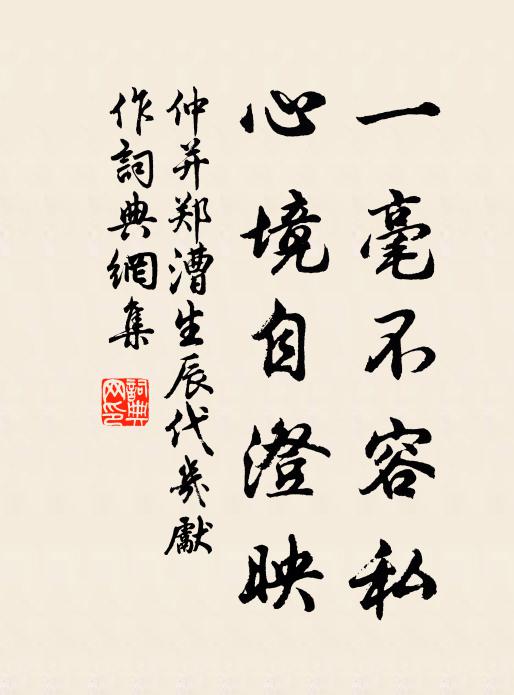 一毫不容私
心境自澄映
仲并郑漕生辰代岁獻
作詞典網集
詞典網印